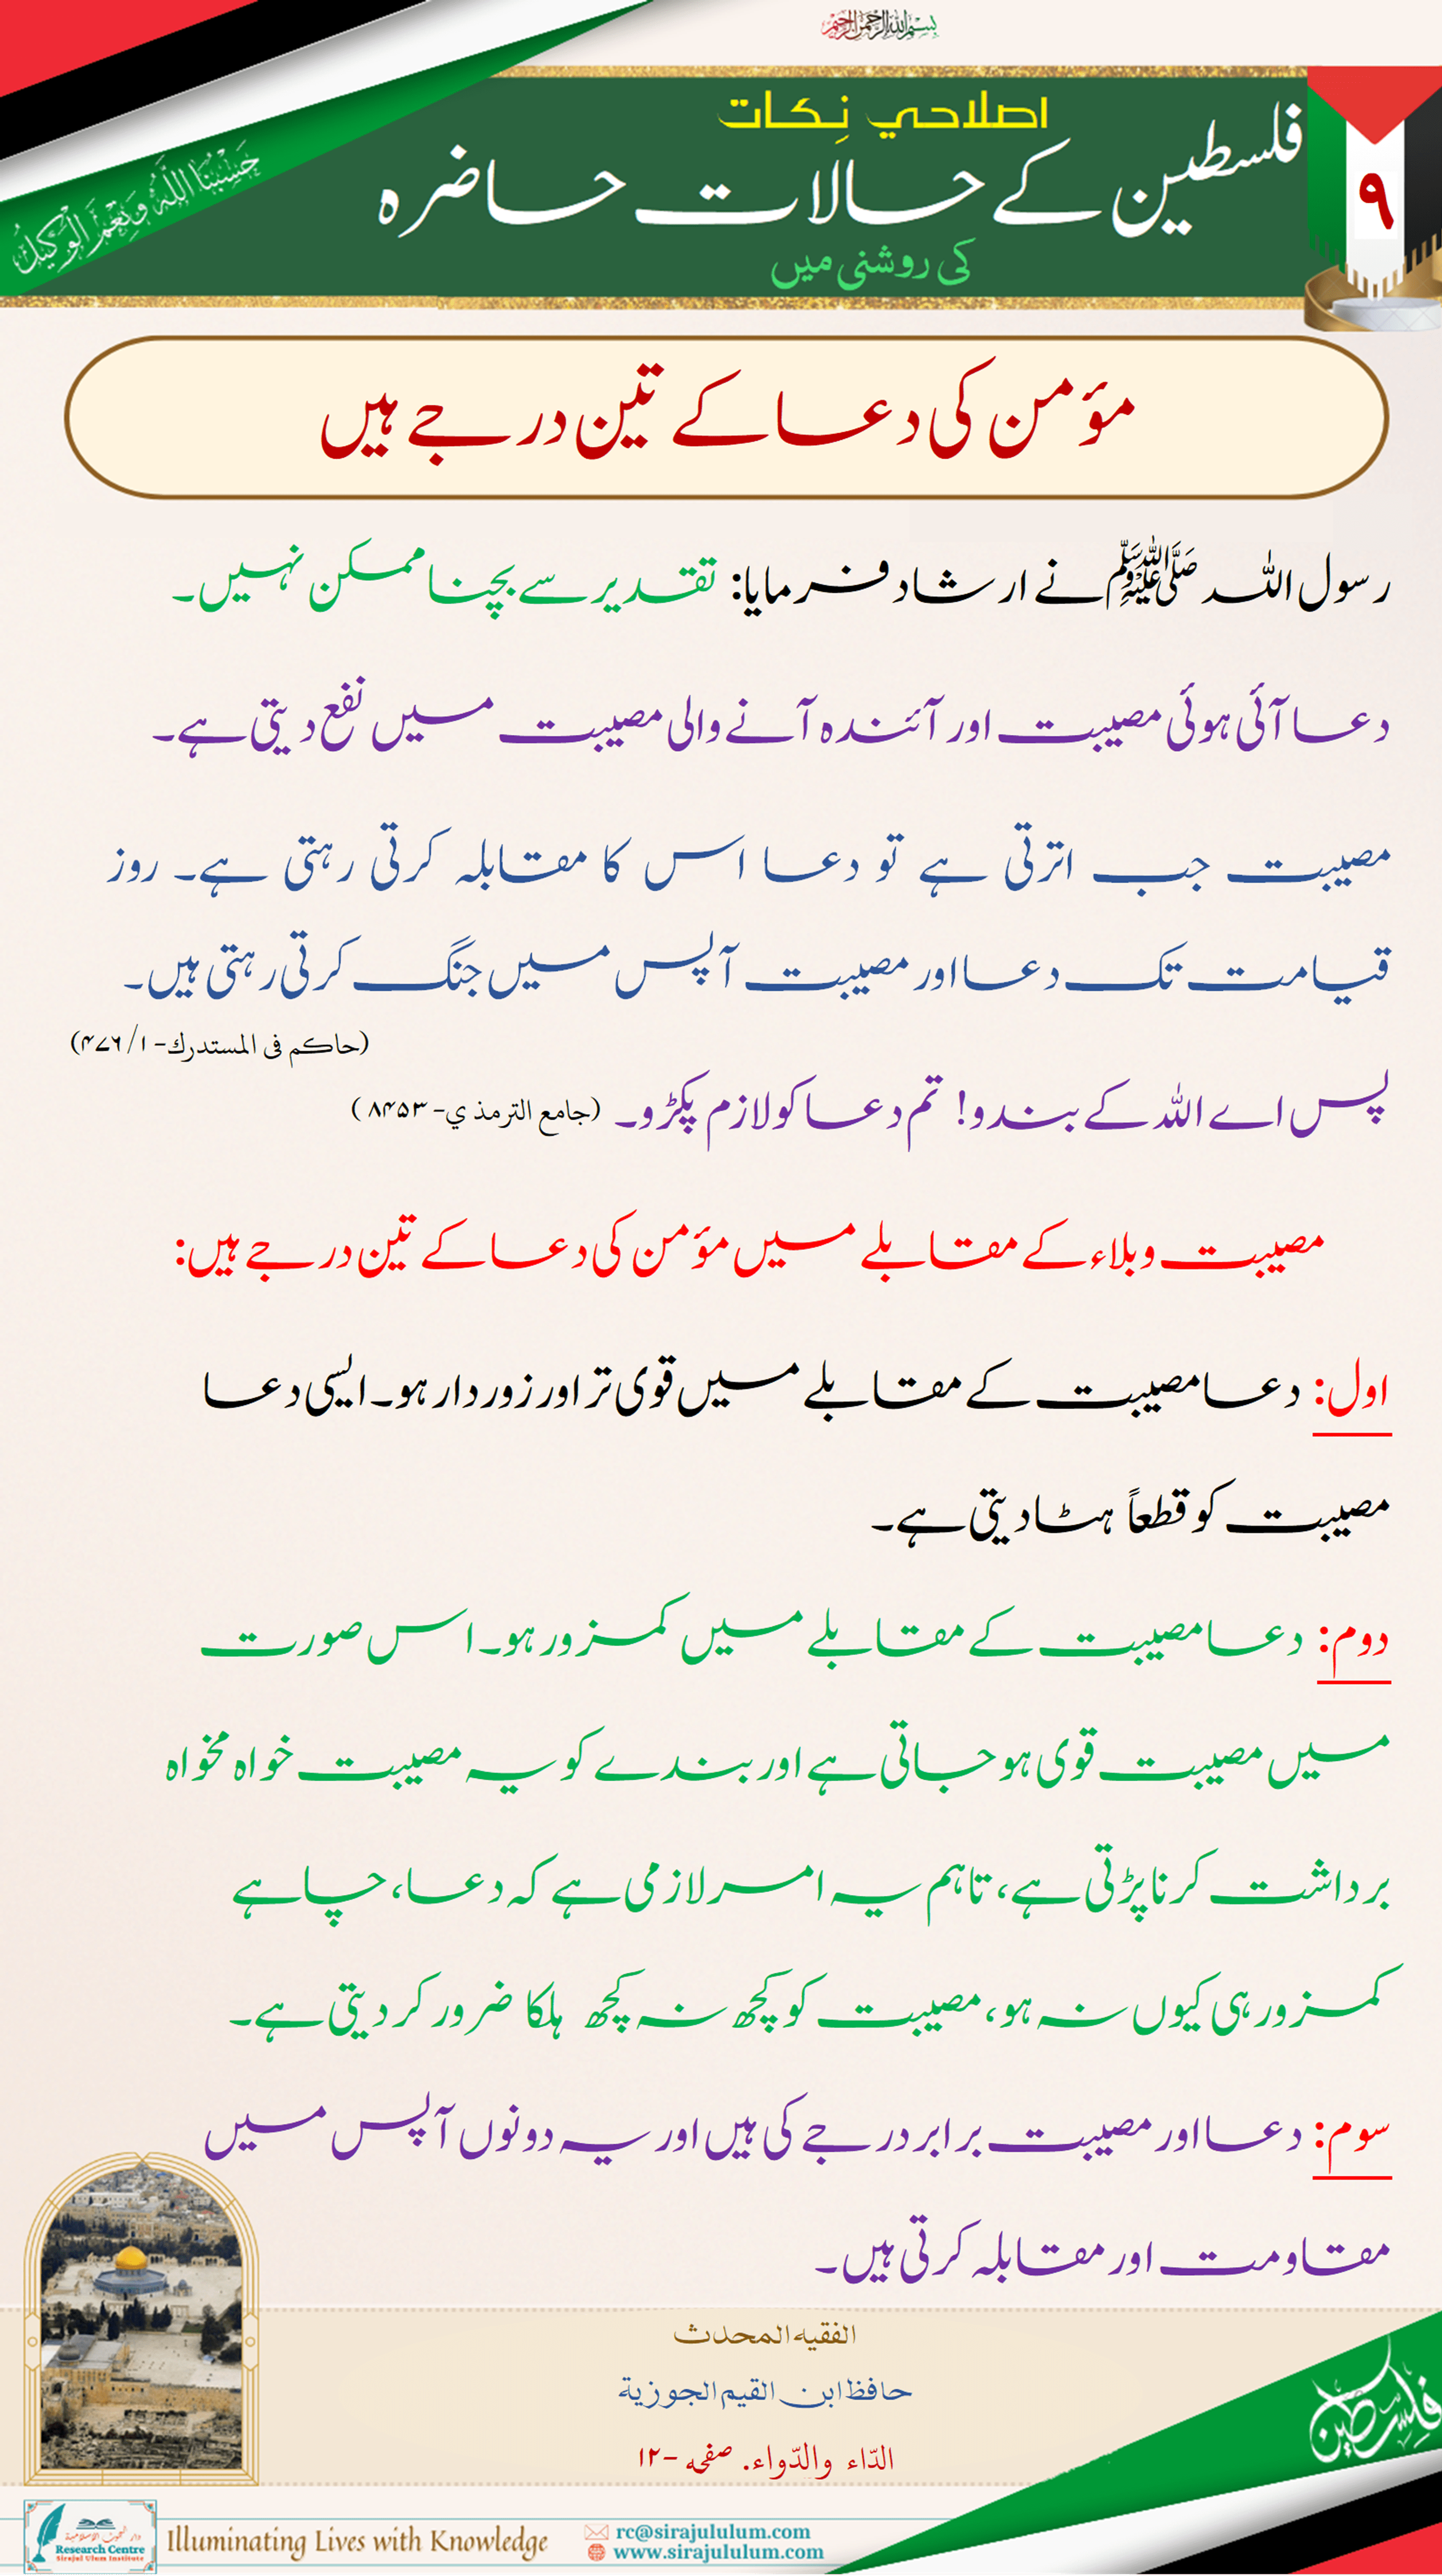 بسم الله الرحمن الرحيم
اصلاحي نِكات
فلسطین کے حالات حاضرہ
کی روشنی میں
۹
حَسْبُنَا اللَّهُ وَنِعْمَ الْوَكِيلُ
مؤمن کی دعا کے تین درجے ہیں
رسول اللہ ﷺ نے ارشاد فرمایا: تقدیر سے بچنا ممکن نہیں۔
دعا آئی ہوئی مصیبت اور آئندہ آنے والی مصیبت میں نفع دیتی ہے۔
مصیبت جب اترتی ہے تو دعا اس کا مقابلہ کرتی رہتی ہے۔ روز
قیامت تک دعا اور مصیبت آپس میں جنگ کرتی رہتی ہیں۔
(حاکم فی المستدرك- ۱/ ۴۷۶)
پس اے اللہ کے بندو! تم دعا کو لازم پکڑو۔ (جامع الترمذي- ۸۴۵۳)
مصیبت وبلاء کے مقابلے میں مؤمن کی دعا کے تین درجے ہیں:
اول: دعا مصیبت کے مقابلے میں قوی تر اور زور دار ہو۔ ایسی دعا
مصیبت کو قطعاً ہٹا دیتی ہے۔
دوم: دعا مصیبت کے مقابلے میں کمزور ہو۔ اس صورت
میں مصیبت قوی ہو جاتی ہے اور بندے کو یہ مصیبت خواہ مخواہ
برداشت کرنا پڑتی ہے، تاہم یہ امر لازمی ہے کہ دعا، چاہے
کمزور ہی کیوں نہ ہو، مصیبت کو کچھ نہ کچھ ہلکا ضرور کر دیتی ہے۔
سوم: دعا اور مصیبت برابر درجے کی ہیں اور یہ دونوں آپس میں
مقاومت اور مقابلہ کرتی ہیں۔
الفقيه المحدث
حافظ ابن القيم الجوزية
الدّاء والدّواء. صفحه -۱۲
فلسطين
Research Centre
Siraj ul Ulum Institute
Illuminating Lives with Knowledge
rc@sirajululum.com
www.sirajululum.com